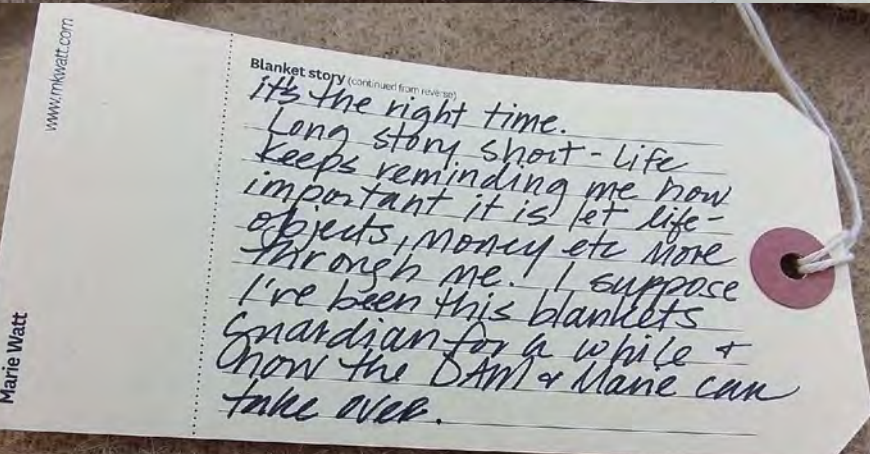 www.mkwatt.com
Marie Watt
Blanket story (continued from reverse)
it's the right time.
Long story short - Life
keeps reminding me how
important it is let life -
objects, money etc move
through me. I suppose
I've been this blankets
guardian for a while +
now the DAM + Marie can
take over.